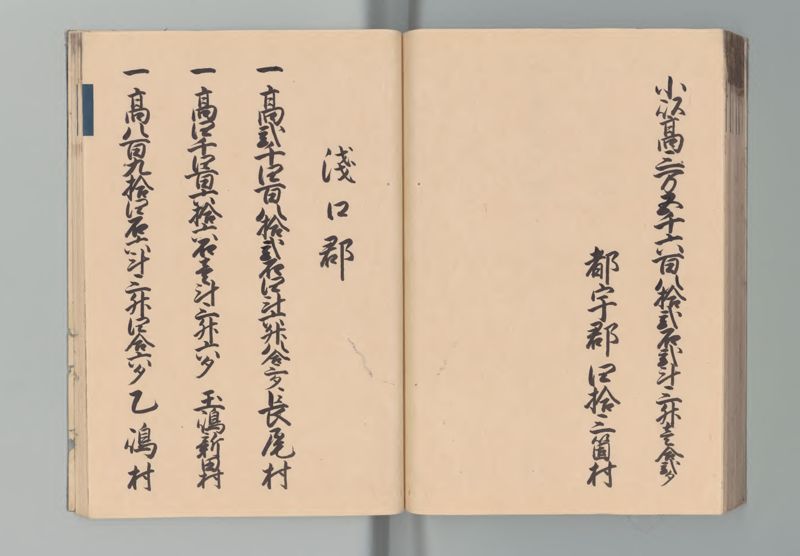 小以高三万五千六百八拾弐石弐斗三升壱合弐夕
都宇郡四拾三箇村
浅口郡
一高弐千四百八拾弐石四斗六升八合三夕長尾村
一高四千四百六拾六石壱斗三升六夕玉嶋新田村
一高八百九拾四石六斗三升四合六夕乙嶋村